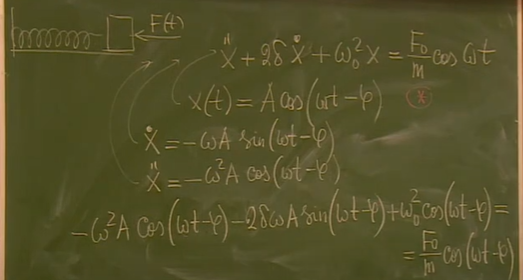 F(t)
ẍ + 2δẋ + ω₀²x = F₀/m cos ωt
x(t) = A cos(ωt-φ) (*)
ẋ = -ωA sin(ωt-φ)
ẍ = -ω²A cos(ωt-φ)
-ω²A cos(ωt-φ) - 2δωA sin(ωt-φ) + ω₀² cos(ωt-φ) =
= F₀/m cos(ωt-φ)